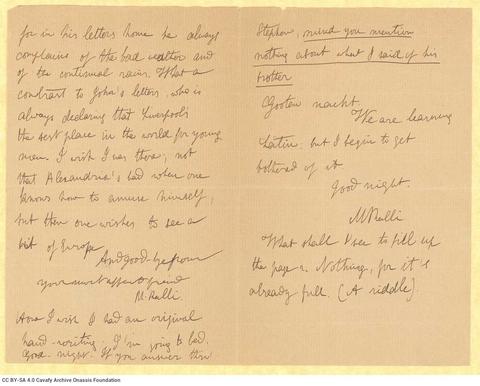 for in his letters home he always
complains of the bad weather and
of the continual rains. What a
contrast to John's letters, who is
always declaring that Liverpool's
the best place in the world for young
men. I wish I was there; not
that Alexandria's bad when one
knows how to amuse himself,
but then one wishes to see a
bit of Europe.
And good-bye from
your most affec friend
M. Ralli.
How I wish I had an original
hand-writing. I'm going to bed.
Good-night. If you answer this
Stephen, mind you mention
nothing about what I said of his
brother
Gooten nacht.
We are learning
Latin: but I begin to get
bothered of it
Good night.
M Ralli
What shall I say to fill up
the page? Nothing, for it's
already full. (A riddle).
CC BY-SA 4.0 Cavafy Archive Onassis Foundation